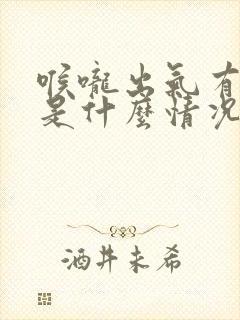 喉嚨出氣有
是什麼情況
酒井未希